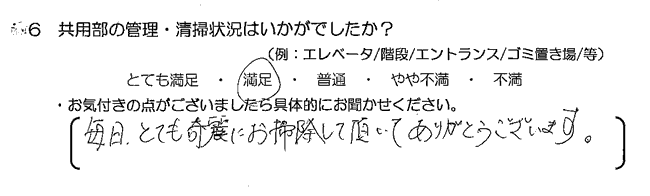 6 共用部の管理・清掃状況はいかがでしたか？
（例：エレベータ/階段/エントランス/ゴミ置き場/等）
とても満足 ・ 満足 ・ 普通 ・ やや不満 ・ 不満
・お気付きの点がございましたら具体的にお聞かせください。
毎日、とても奇麗にお掃除して頂いてありがとうございます。